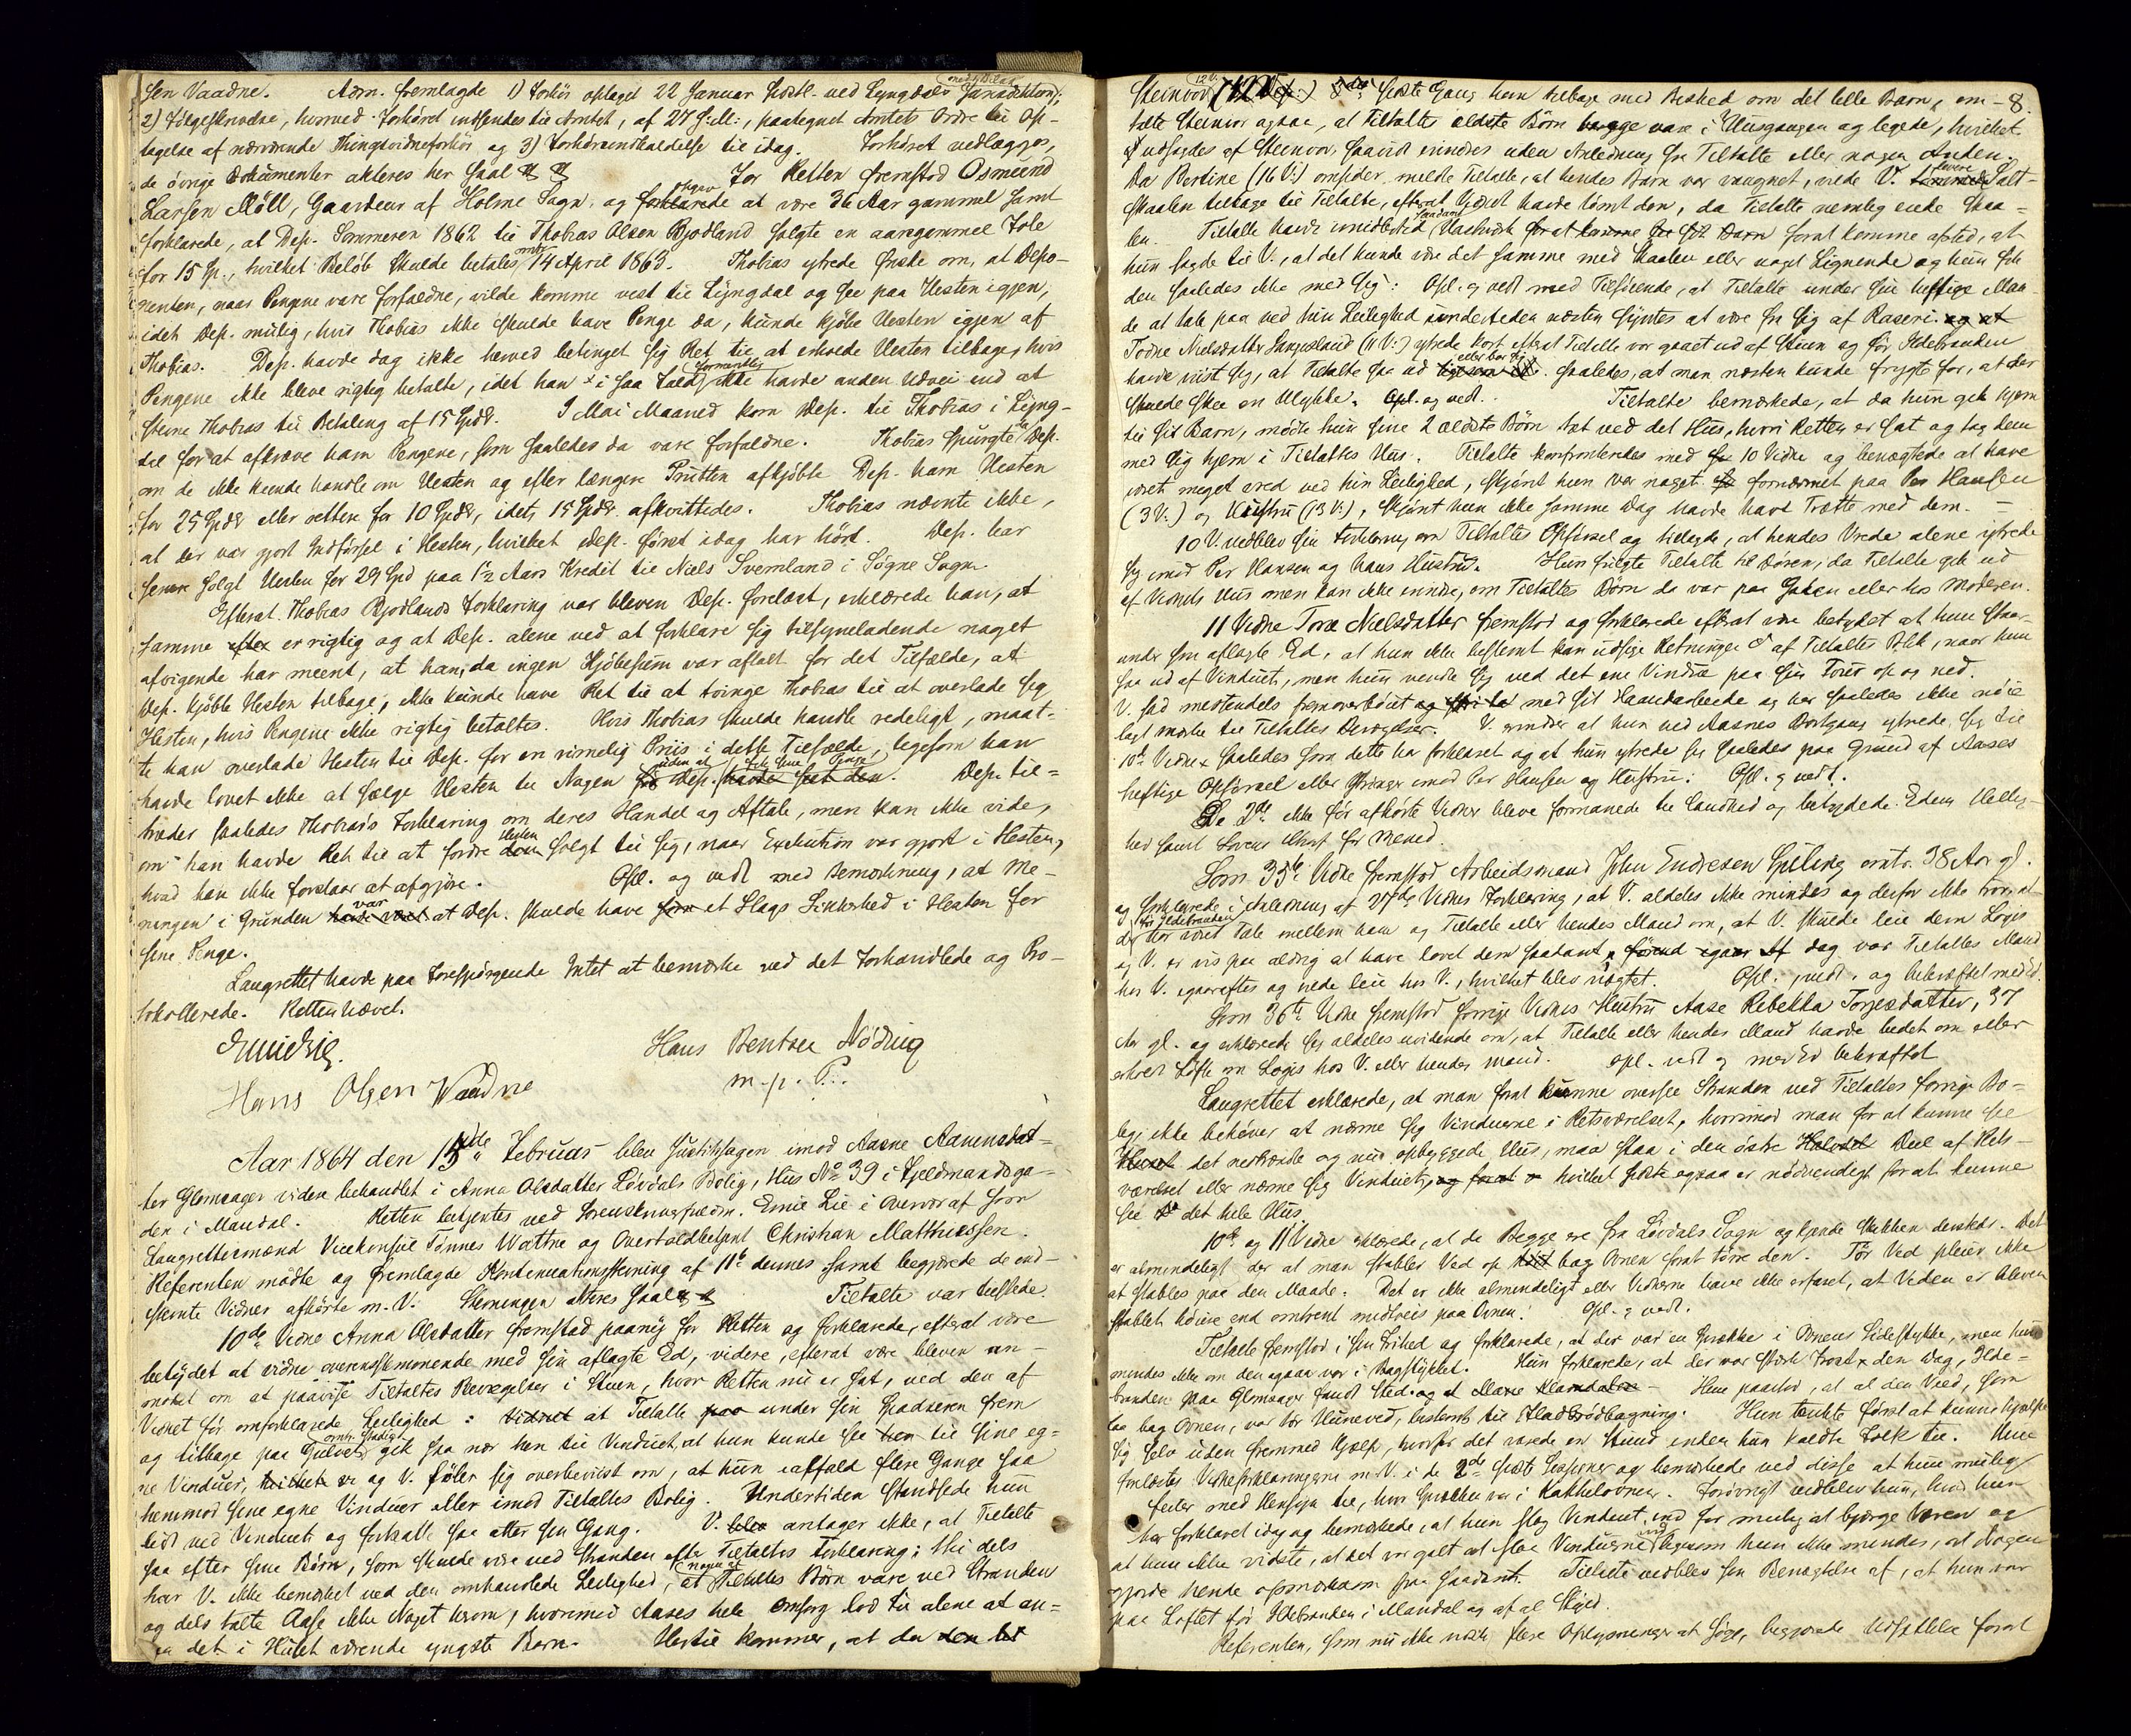 sen Vaadne. Adm. fremlagde 1) Forhør optaget 22 Januar sidstl. ved Lyngdals Jurisdiktion med 1 Bilag;
2) Følgeskrivelse, hvorved Forhøret indsendes til Amtet, af 27 s. M., paategnet Amtets Ordre til Op-
tagelse af nærværende Thingsvidneforhør og 3) Forhørsindkaldelse til idag. Forhøret vedlægges,
de øvrige Dokumenter akteres her saal. For Retten fremstod Osmund
Larsen Møll, Gaardbr af Holme Sogn, og opgav at være 36 Aar gammel samt
forklarede, at Dep. Sommeren 1862 til Thobias Olsen Bjodland solgte en aarsgammel Fole
for 15 Sp., hvilket Beløb skulde betales omtr. 14 April 1863. Thobias ytrede Ønske om, at Depo-
nenten, naar Pengene vare forfaldne, vilde komme vest til Lyngdal og see paa Hesten igjen,
idet Dep. mulig, hvis Thobias ikke skulde have Penge da, kunde kjøbe Hesten igjen af
Thobias. Dep. havde dog ikke herved betinget sig Ret til at erholde Hesten tilbage, hvis
Pengene ikke bleve rigtig betalte, idet han i saa Fald formentlig ikke havde anden Udvei end at
stevne Thobias til Betaling af 15 Spdlr. I Mai Maaned kom Dep. til Thobias i Lyng-
dal for at afkræve ham Pengene, som saaledes da vare forfaldne. Thobias spurgte da Dep.
om de ikke kunde handle om Hesten og efter længere Prutten afkjøbte Dep. ham Hesten
for 25 Spdlr eller rettere for 10 Spdlr, idet 15 Spdlr. afkvittedes. Thobias nævnte ikke,
at der var gjort Indførsel i Hesten, hvilket Dep. først idag har hørt. Dep. har
senere solgt Hesten for 29 Spd paa 1½ Aars Kredit til Niels Svemland i Søgne Sogn.
Efterat Thobias Bjodlands Forklaring var bleven Dep. forelæst, erklærede han, at
samme er rigtig og at Dep. alene ved at forklare sig tilsyneladende noget
afvigende har meent, at han, da ingen Kjøbesum var aftalt for det Tilfælde, at
Dep. kjøbte Hesten tilbage, ikke kunde have Ret til at tvinge Thobias til at overlade sig
Hesten, hvis Pengene ikke rigtig betaltes. Hvis Thobias skulde handle redeligt, maat-
te han overlade Hesten til Dep. for en rimelig Priis i dette Tilfælde, ligesom han
havde lovet ikke at sælge Hesten til Nogen uden at Dep. fik sine Penge. Dep. til-
træder saaledes Thobias's Forklaring om deres Handel og Aftale, men kan ikke vide,
om han havde Ret til at fordre Hesten solgt til sig, naar Exekution var gjort i Hesten,
hvad han ikke forstaar at afgjøre. Opl. og vedt. med Bemærkning, at Me-
ningen i Grunden var at Dep. skulde have et Slags Sikkerhed i Hesten for
sine Penge.
Laugrettet havde paa Forespørgende Intet at bemærke ved det Forhandlede og Pro-
tokollerede. Retten hævet.
Hans Bentsen Nøding
Hans Olsen Waadne m. p. P.
Aar 1864 den 15de Februar blev Justitssagen imod Aasne Aanensdat-
ter Glomsager videre behandlet i Anna Olsdatter Løvdals Bolig, Huus No 39 i Kjeldmandsga-
den i Mandal. Retten betjentes ved Sorenskriverfuldm. Emil Lie i Overvær af som
Laugrettesmænd Vicekonsul Tønnes Wattne og Overtoldbetjent Christian Matthiessen.
Referenten mødte og fremlagde Kontinuationsstevning af 11te dennes samt begjærede de ind-
stevnte Vidner afhørte m. V. Stevningen akteres saal. Tiltalte var tilstede.
10de Vidne Anna Olsdatter fremstod paany for Retten og forklarede, efterat være
betydet at vidne overensstemmende med sin aflagte Ed, videre, efterat være bleven an-
modet om at paavise Tiltaltes Bevægelser i Stuen, hvor Retten nu er sat, ved den af
Vidnet før omforklarede Leilighed: at Tiltalte under sin Spadseren frem
og tilbage paa Gulvet omtr. stadigt gik saa nær hen til Vinduet, at hun kunde see til sine eg-
ne Vinduer, og V. føler sig overbeviist om, at hun ialfald flere Gange saa
henimod sine egne Vinduer eller imod Tiltaltes Bolig. Undertiden standsede hun
lidt ved Vinduet og fortsatte saa atter sin Gang. V. antager ikke, at Tiltalte
saa efter sine Børn, som skulde være ved Stranden efter Tiltaltes Forklaring; thi dels
har V. ikke bemærket ved den omhandlede Leilighed, at nogen af Tiltaltes Børn vare ved Stranden
og dels talte Aase ikke Noget herom, hvorimod Aases hele Omsorg lod til alene at an-
gaa det i Huset værende yngste Barn. Hertil kommer, at da
Steinvor (12 V.) sidste Gang kom tilbage med Besked om det lille Barn, om- 8.
talte Steinvor ogsaa, at Tiltaltes ældste Børn begge vare i Huusgangen og legede, hvilket
udsagdes af Steinvor, saavidt erindres uden Anledning fra Tiltalte eller nogen Anden.
Da Bertine (16 V.) omsider meldte Tiltalte, at hendes Barn var vaagnet, vilde V. levere Salt-
skaalen tilbage til Tiltalte, efterat Vidnet havde tømt den, da Tiltalte nemlig eiede Skaa-
len. Tiltalte havde imidlertid saadant Hastværk forat komme afsted, at
hun sagde til V., at det kunde være det samme med Skaalen eller noget Lignende og hun fik
den saaledes ikke med sig. Opl. og vedt. med Tilføiende, at Tiltalte under sin heftige Maa-
de at tale paa ved hin Leilighed undertiden næsten syntes at være fra sig af Raseri.
Todne Nielsdatter (11 V.) ytrede kort efterat Tiltalte var gaaet ud af Stuen og før Ildebranden
havde viist sig, at Tiltalte saa ud eller bar sig saaledes, at man næsten kunde frygte for, at der
skulde skee en Ulykke. Opl. og vedt. Tiltalte bemærkede, at da hun gik hjem
til sit Barn, mødte hun sine 2 ældste Børn tæt ved det Huus, hvori Retten er sat og tog dem
med sig hjem i Tiltaltes Huus. Tiltalte konfronteredes med 10 Vidne og benægtede at have
været meget vred ved hin Leilighed, skjønt hun var noget fornærmet paa Per Hansen
(3 V.) og Hustru (13 V.), skjønt hun ikke samme Dag havde havt Trætte med dem.
10 V. vedblev sin Forklaring om Tiltaltes Opførsel og tillagde, at hendes Vrede alene ytrede
sig imod Per Hansen og hans Hustru. Hun fulgte Tiltalte til Døren, da Tiltalte gik ud
af Vidnets Huus men kan ikke erindre, om Tiltaltes Børn da var paa Gaden eller hos Moderen.
11 Vidne Tone Nielsdatter fremstod og forklarede efterat være betydet at hun staar
under sin aflagte Ed, at hun ikke bestemt kan udsige Retningen af Tiltaltes Blik, naar hun
saa ud af Vinduet, men hun vendte sig ved det ene Vindue paa sin Tour op og ned.
V. sad mestendels fremoverbøiet med sit Haandarbeide og har saaledes ikke nøie
lagt mærke til Tiltaltes Bevægelser. V. erindrer at hun ved Aasnes Bortgang ytrede sig til
10de Vidne saaledes som dette har forklaret og at hun ytrede sig saaledes paa Grund af Aases
heftige Opførsel eller Yttringer imod Per Hansen og Hustru. Opl. & vedt.
De 2de ikke før afhørte Vidner bleve formanede til Sandhed og betydede Edens Hellig-
hed samt Lovens Straf for Meened.
Som 35te Vidne fremstod Arbeidsmand John Endresen omtr. 38 Aar gl.
og forklarede i Anledning af Vidnes Forklaring, at V. aldeles ikke mindes og derfor ikke troer, at
der før Ildebranden har været Tale mellem ham og Tiltalte eller hendes Mand om, at V. skulde leie dem Logis
og V. er vis paa aldrig at have lovet dem saadant. dag var Tiltaltes Mand
hos V. igaaraftes og vilde leie hos V., hvilket blev nægtet. Opl., vedt. og bekræftet med Ed.
Som 36te Vidne fremstod forrige Vidnes Hustru Aase Rebekka Torjesdatter, 37
Aar gl. og erklærede sig aldeles uvidende om, at Tiltalte eller hendes Mand havde bedet om eller
erholdt Løfte om Logis hos V. eller hendes Mand. Opl. vedt. og med Ed bekræftet.
Laugrettet erklærede, at man forat kunne oversee Stranden ved Tiltaltes forrige Bo-
lig, ikke behøver at nærme sig Vinduerne i Retsværelset, hvorimod man for at kunne see
det nedbrændte og nu opbyggede Huus, maa staa i den østre Deel af Rets-
værelset eller nærme sig Vinduet, hvilket sidste ogsaa er nødvendigt for at kunne
see det hele Huus.
10de og 11 Vidne erklærede, at de Begge ere fra Løvdals Sogn og kjende Skikken dersteds. Det
er almindeligt der at man stabler Ved op bag Ovnen forat tørre den. Tør Ved pleier ikke
at stables paa den Maade. Det er ikke almindeligt eller Vidnerne have ikke erfaret, at Veden er bleven
stablet høiere end omtrent midtveis paa Ovnen. Opl. & vedt.
Tiltalte fremstod i sin Frihed og forklarede, at der var en Sprække i Ovnens Sidestykke, men hun
mindes ikke om den ogsaa var i Bagstykket. Hun forklarede, at der var stærk Frost den Dag, Ilde-
branden paa Glomsager fandt Sted. Hun paastod, at al den Ved, som
laa bag Ovnen, var tør Huunved, bestemt til Fladbrødbagning. Hun tænkte først at kunne hjælpe
sig selv uden fremmed Hjælp, hvorfor det varede en Stund inden hun kaldte Folk til. Hun
forelæstes Vidneforklaringerne m. V. i de 2de sidste Sessioner og bemærkede ved disse at hun mulig
feiler med Hensyn til, hvor Sprækken var i Kakkelovnen. Forøvrigt vedblev hun, hvad hun
har forklaret idag og bemærkede, at hun slog Vinduet ind for mulig at bjerge Varen og
at hun ikke vidste, at det var galt at slaa Vinduerne ind ligesom hun ikke mindes, at Nogen
gjorde hende opmærksom paa Saadant. Tiltalte vedblev sin Benægtelse af, at hun var
paa Loftet før Ildebranden i Mandal og af al Skyld.
Referenten, som nu ikke vidste flere Oplysninger at søge, begjærede Udsættelse forat